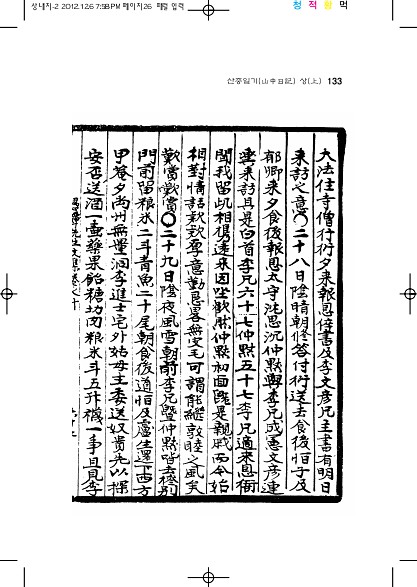 상내지-2 2012.12.6 7:58 PM 페이지26 패럴 입력
청 적 황 먹
산중일기(山中日記) 상(上) 133
大法住寺僧行衍夕來報恩倅書及李文彦兄主書有明日
來訪之意○二十八日陰晴朝修答付衍送去食後恒子及
郁卿來夕食後報恩太守沈思沉仲默與李兄成憲文彦連
來訪具是白首李兄六十七仲默五十七李兄適來恩衙
聞我留此相携遠來因坐歡然仲默初面旣是親戚而今始
相對情話款款厚意勤懇畧無文毛可謂能繼敦睦之風矣
歎賞歎賞○二十九日陰夜風雪朝前李兄曁仲默皆去惜別
門前留粮米二斗青魚二十尾朝食後道恒及慶生還下西方
甲巷夕內州無量洞李進士宅外姑母主委送奴貴先以探
安否送酒一壺藥果飴糖坊肉粮米五斗升襪一事且見李